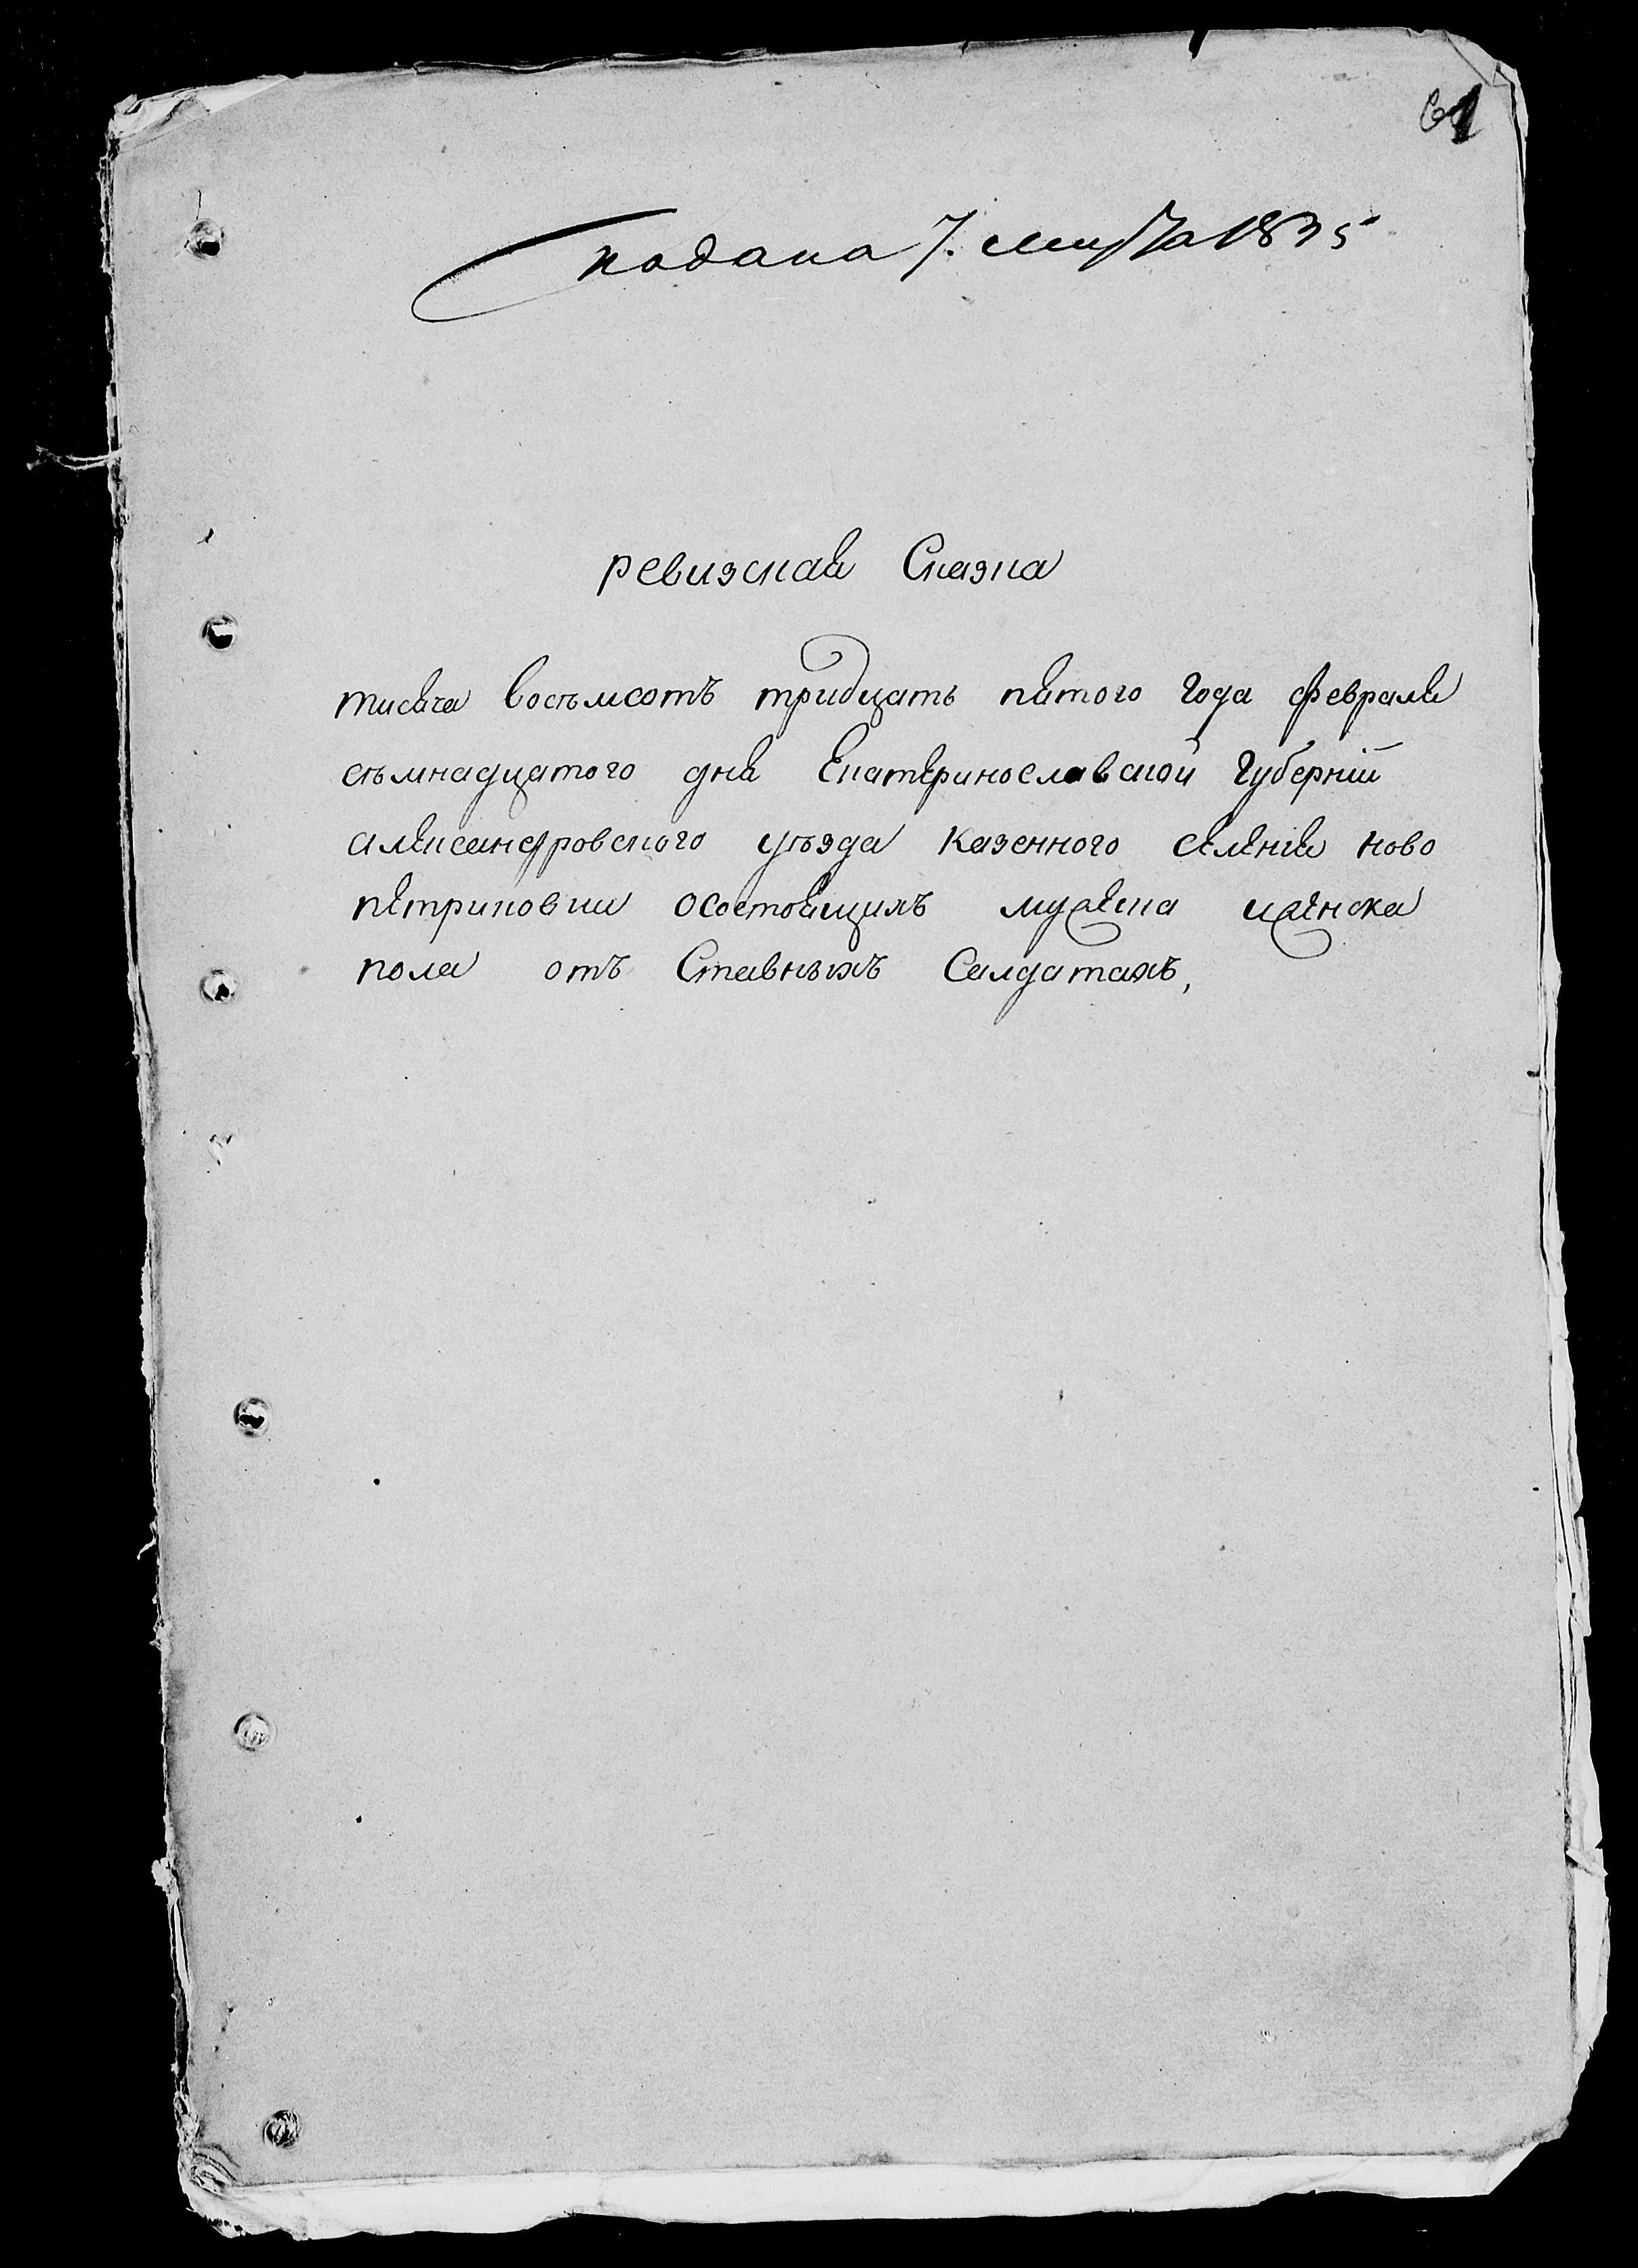 подана 7. марта 1835
ревизская Сказка
тисяча восъмсотъ тридцать пятого года февраля
сѣмнадцатого дня Екатеринославской губерніи
александровского уѣзда казенного селения ново
петриковки осостоящихъ мужеска иженска
пола отъ Ставныхъ Салдатахъ,